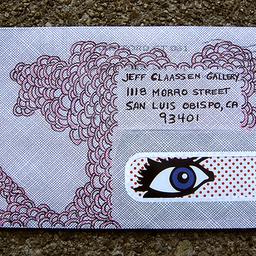 JEFF CLAASSEN GALLERY
1118 MORRO STREET
SAN LUIS OBISPO, CA
93401